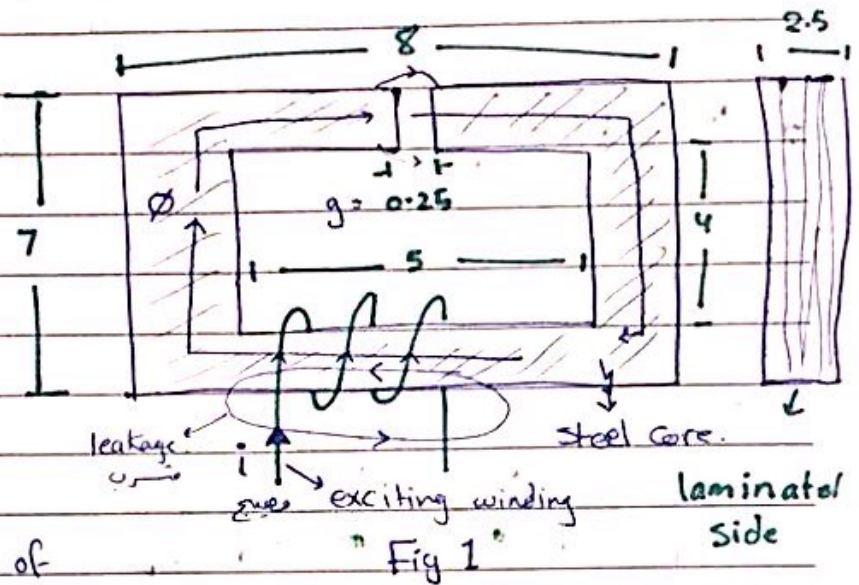 8
2.5
Ø
g = 0.25
7
4
5
leakage
i
exciting winding
steel core.
laminated
side
of
Fig 1